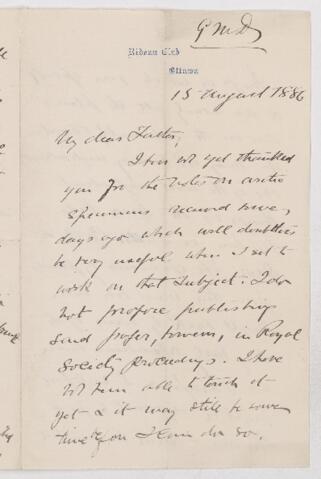 GMD
Rideau Club
Ottawa
15 August 1886
My dear Father,
I have not yet thanked
you for the notes on arctic
specimens received some
days ago which will doubtless
be very useful when I set to
work on that subject. I do
not propose publishing
said paper, however, in Royal
Society Proceedings. I have
not been able to touch it
yet & it may still be some
time before I can do so.